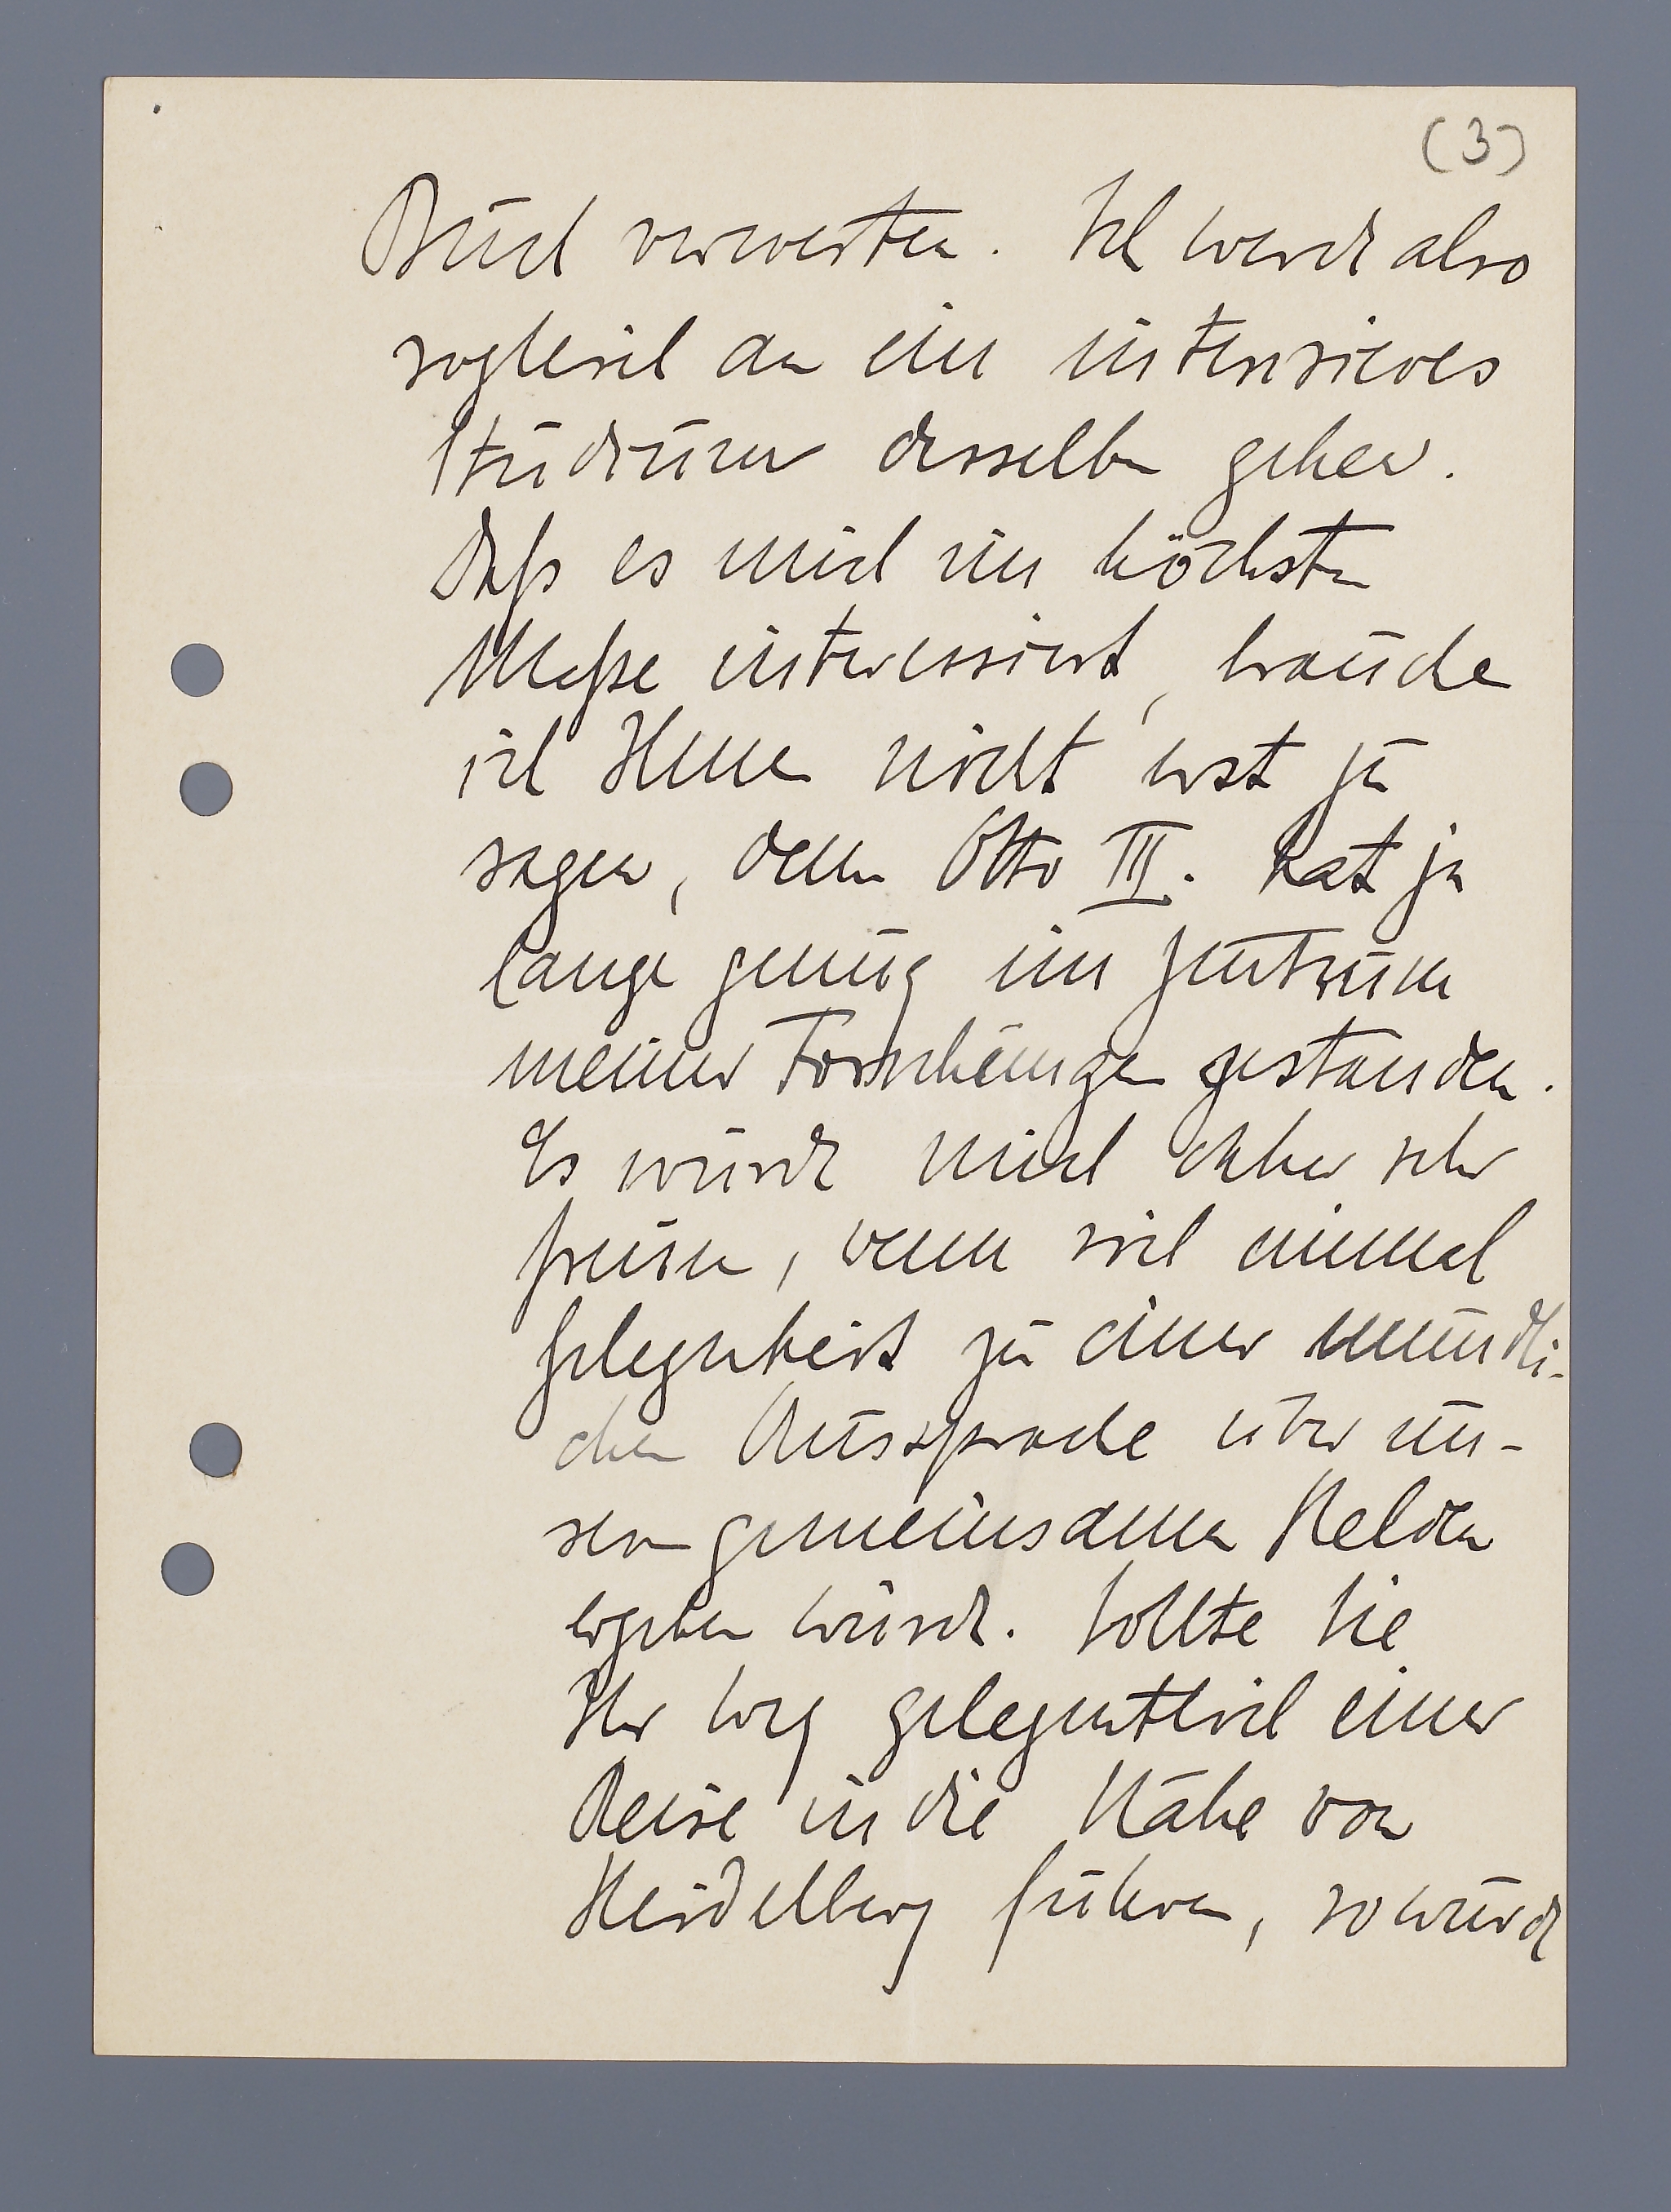 (3)
Buch verwerten. Ich werde also
sogleich an ein intensieves
Studium desselben gehen.
Daß es mich im höchsten
Maße interessiert, brauche
ich Ihnen nicht erst zu
sagen, denn Otto III. hat ja
lange genug im Zentrum
meiner Forschungen gestanden.
Es würde mich daher sehr
freuen, wenn sich einmal
Gelegenheit zu einer mündli-
chen Aussprache über un-
sern gemeinsamen Helden
ergeben würde. Sollte Sie
Ihr Weg gelegentlich einer
Reise in die Nähe von
Heidelberg führen, so würde